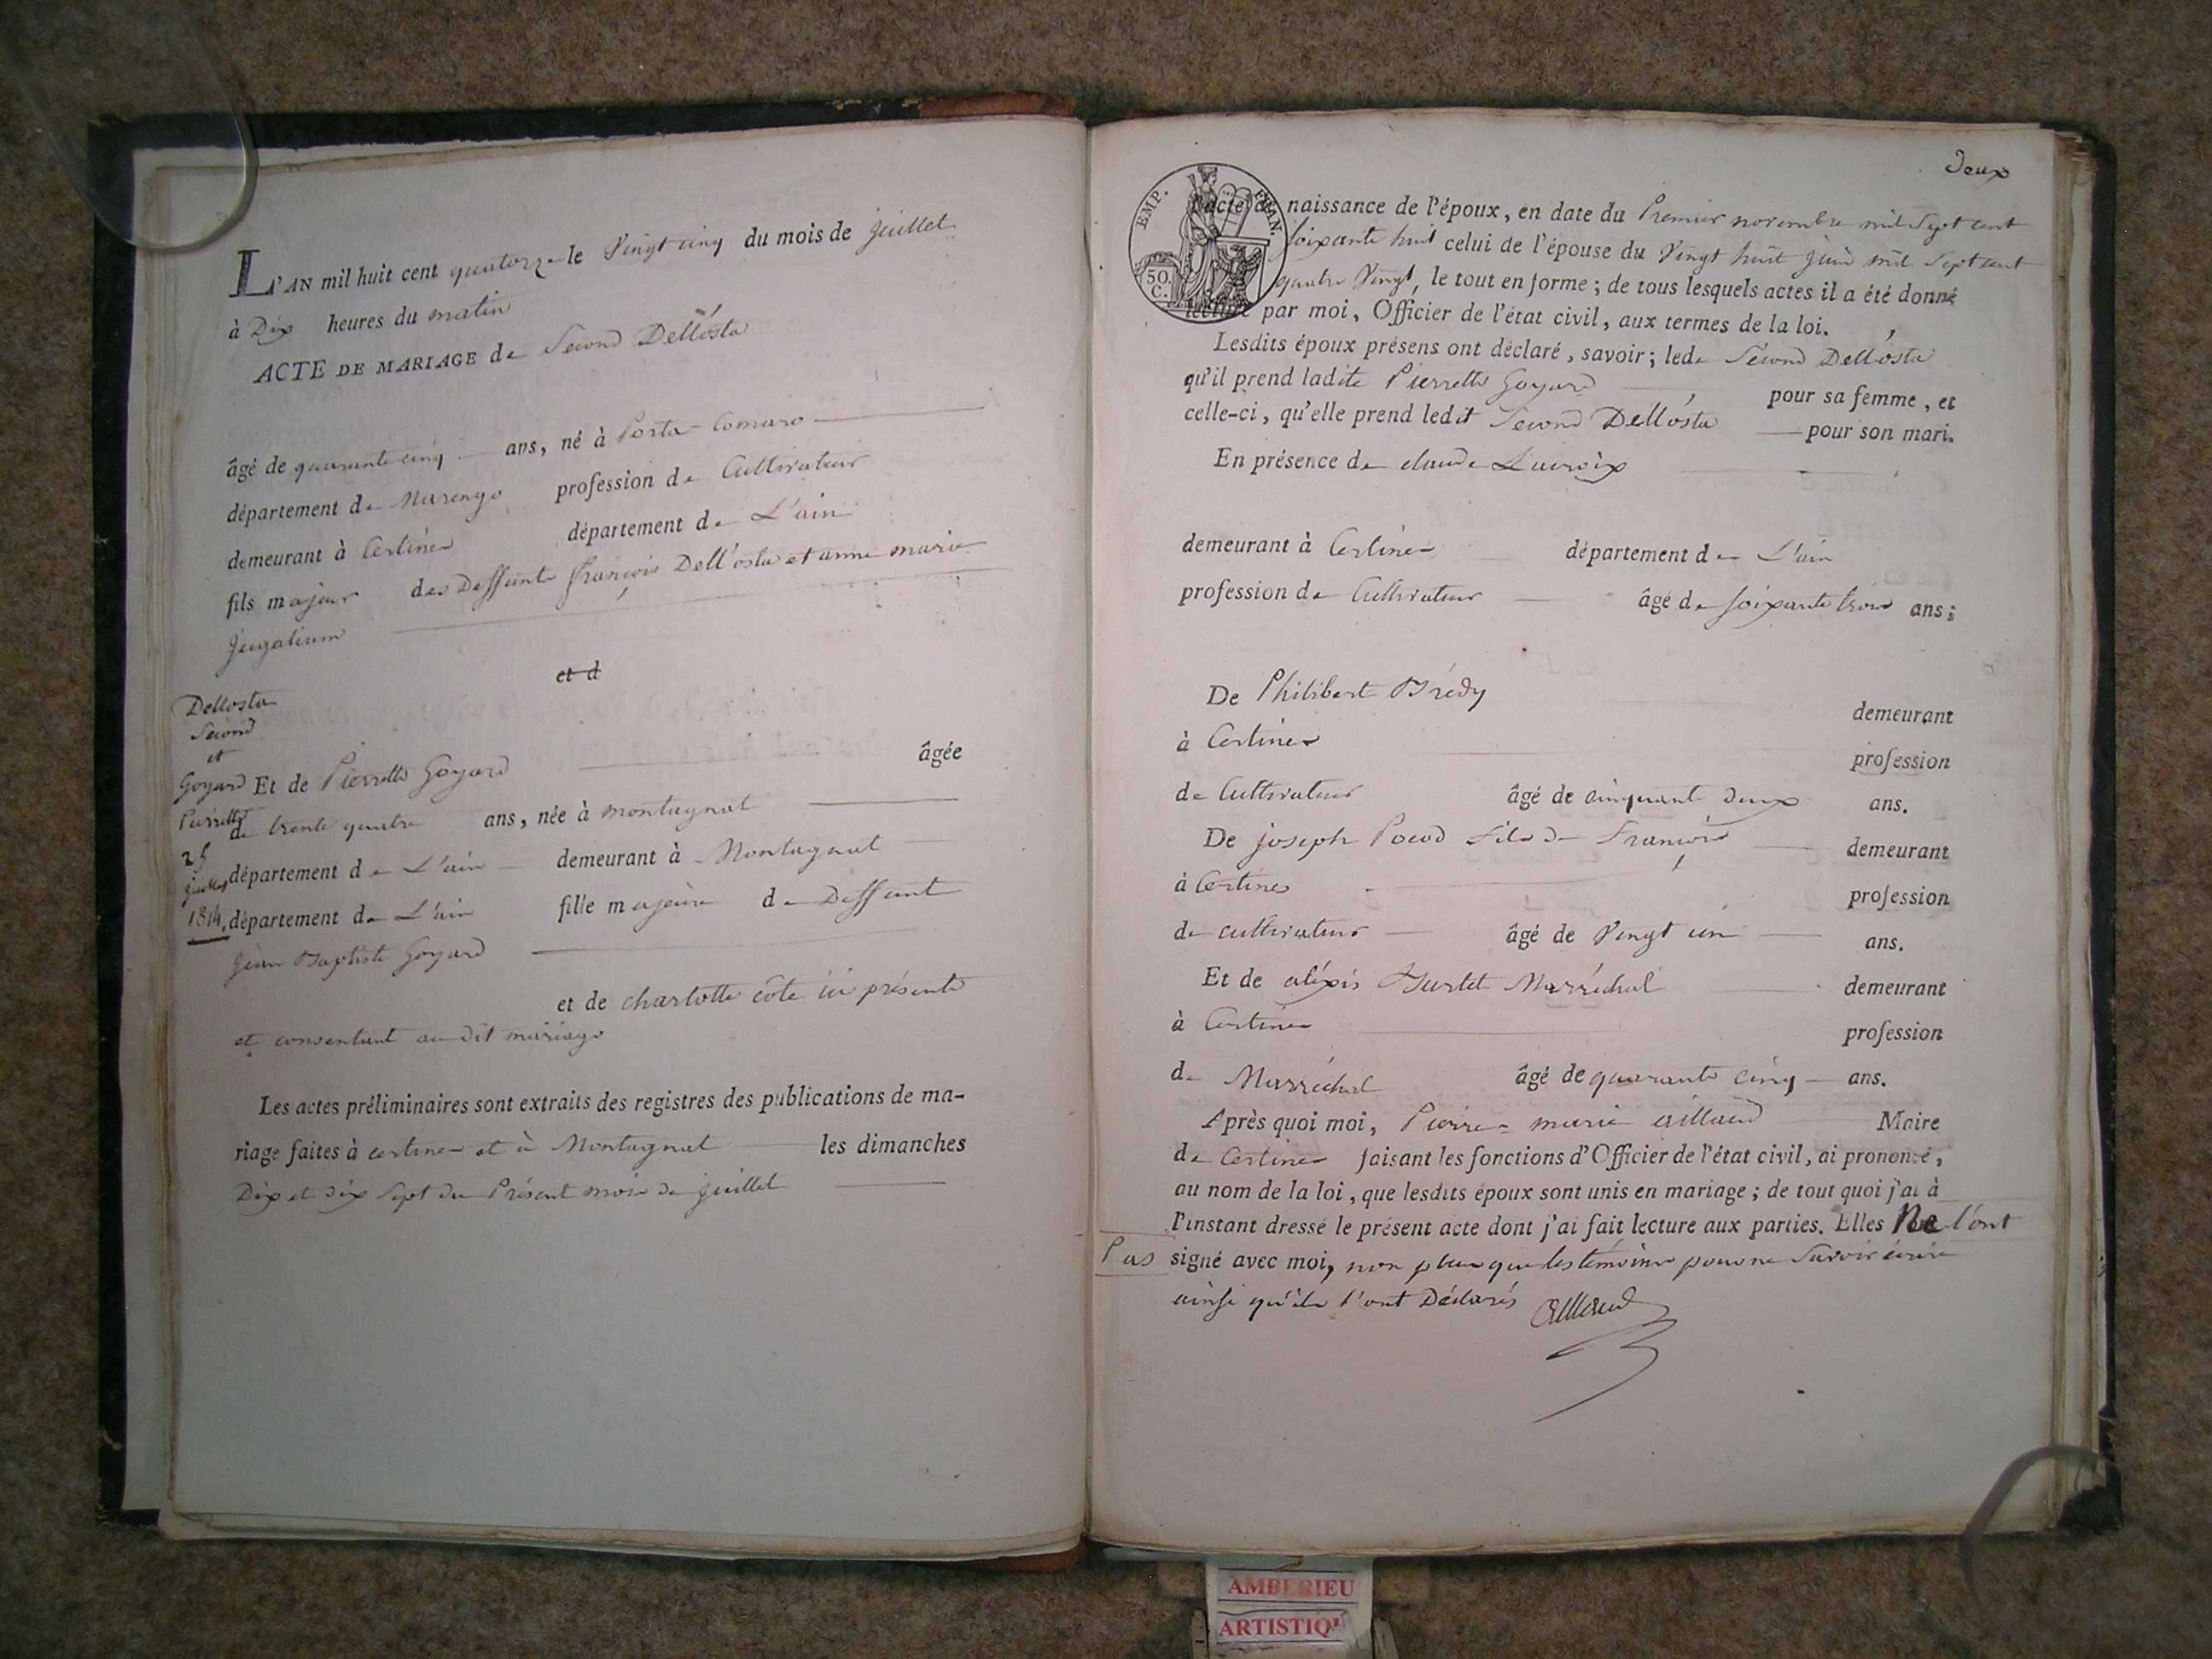 L'AN mil huit cent quatorze le Vingt cinq du mois de juillet
à Dix heures du matin
ACTE DE MARIAGE de Second Dell'osta
âgé de quarante cinq ans, né à Porta Comaro
département de Marengo profession de Cultivateur
demeurant à Certines département de L'ain
fils majeur des Deffunts françois Dell'osta et anne marie
Jugalium
et d
Dellosta
Second
et
Goyard
Pierrette
25
juillet
1814.
Et de Pierrette Goyard âgée
de trente quatre ans, née à montagnat
département de L'ain demeurant à Montagnat
département de L'ain fille majeure de Deffunt
Jean Baptiste Goyard
et de charlotte côte ici présente
et consentant au dit mariage
Les actes préliminaires sont extraits des registres des publications de ma-
riage faites à certines et à Montagnat les dimanches
Dix et dix Sept du Présent mois de juillet
Deux
EMP. FRAN.
50.
C.
l'acte de naissance de l'époux, en date du Premier novembre mil Sept cent
soixante huit celui de l'épouse du Vingt huit juin mil Sept cent
quatre Vingt, le tout en forme ; de tous lesquels actes il a été donné
lecture par moi, Officier de l'état civil, aux termes de la loi.
Lesdits époux présens ont déclaré, savoir ; lede Second Dell'osta
qu'il prend ladite Pierrette Goyard pour sa femme, et
celle-ci, qu'elle prend ledit Second Dell'osta pour son mari.
En présence de claude Lacroix
demeurant à Certines département de L'ain
profession de Cultivateur âgé de soixante trois ans ;
De Philibert Brédy demeurant
à Certines profession
de Cultivateur âgé de cinquante deux ans.
De joseph Pocod fils de François demeurant
à Certines profession
de cultivateur âgé de Vingt un ans.
Et de aléxis Burlet Marréchal demeurant
à Certines profession
de Marréchal âgé de quarante cinq ans.
Après quoi moi, Pierre marie aillaud Maire
de Certines faisant les fonctions d'Officier de l'état civil, ai prononcé,
au nom de la loi, que lesdits époux sont unis en mariage ; de tout quoi j'ai à
l'instant dressé le présent acte dont j'ai fait lecture aux parties. Elles Ne l'ont
Pas signé avec moi, non plus que les témoins pour ne Savoir écrire
ainsi qu'ils l'ont Déclarés aillaud
AMBERIEU
ARTISTIQ